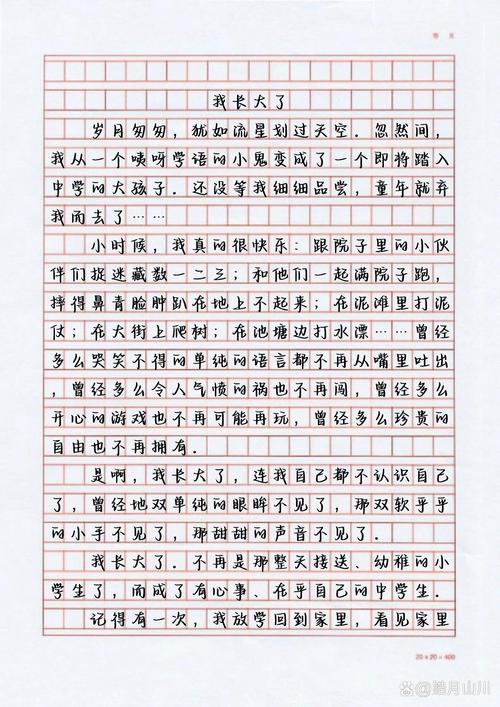 我长大了
岁月匆匆，犹如流星划过天空．忽然间，
我从一个咦呀学语的小鬼变成了一个即将踏入
中学的大孩子．还没等我细细品尝，童年就弃
我而去了……
小时候，我真的很快乐：跟院子里的小伙
伴们捉迷藏数一二三；和他们一起满院子跑，
摔得鼻青脸肿趴在地上不起来；在泥滩里打泥
仗；在大街上爬树；在池塘边打水漂……曾经
多么哭笑不得的单纯的语言都不再从嘴里吐出
，曾经多么令人气愤的祸也不再闯，曾经多么
开心的游戏也不再可能再玩，曾经多么珍贵的
自由也不再拥有．
是啊，我长大了，连我自己都不认识自己
了，曾经地双单纯的眼眸不见了，那双软乎乎
的小手不见了，那甜甜的声音不见了．
我长大了．不再是那整天接送、幼稚的小
学生了，而成了有心事、在乎自己的中学生．
记得有一次，我放学回到家里，看见家里
20×20=400
皓月山川